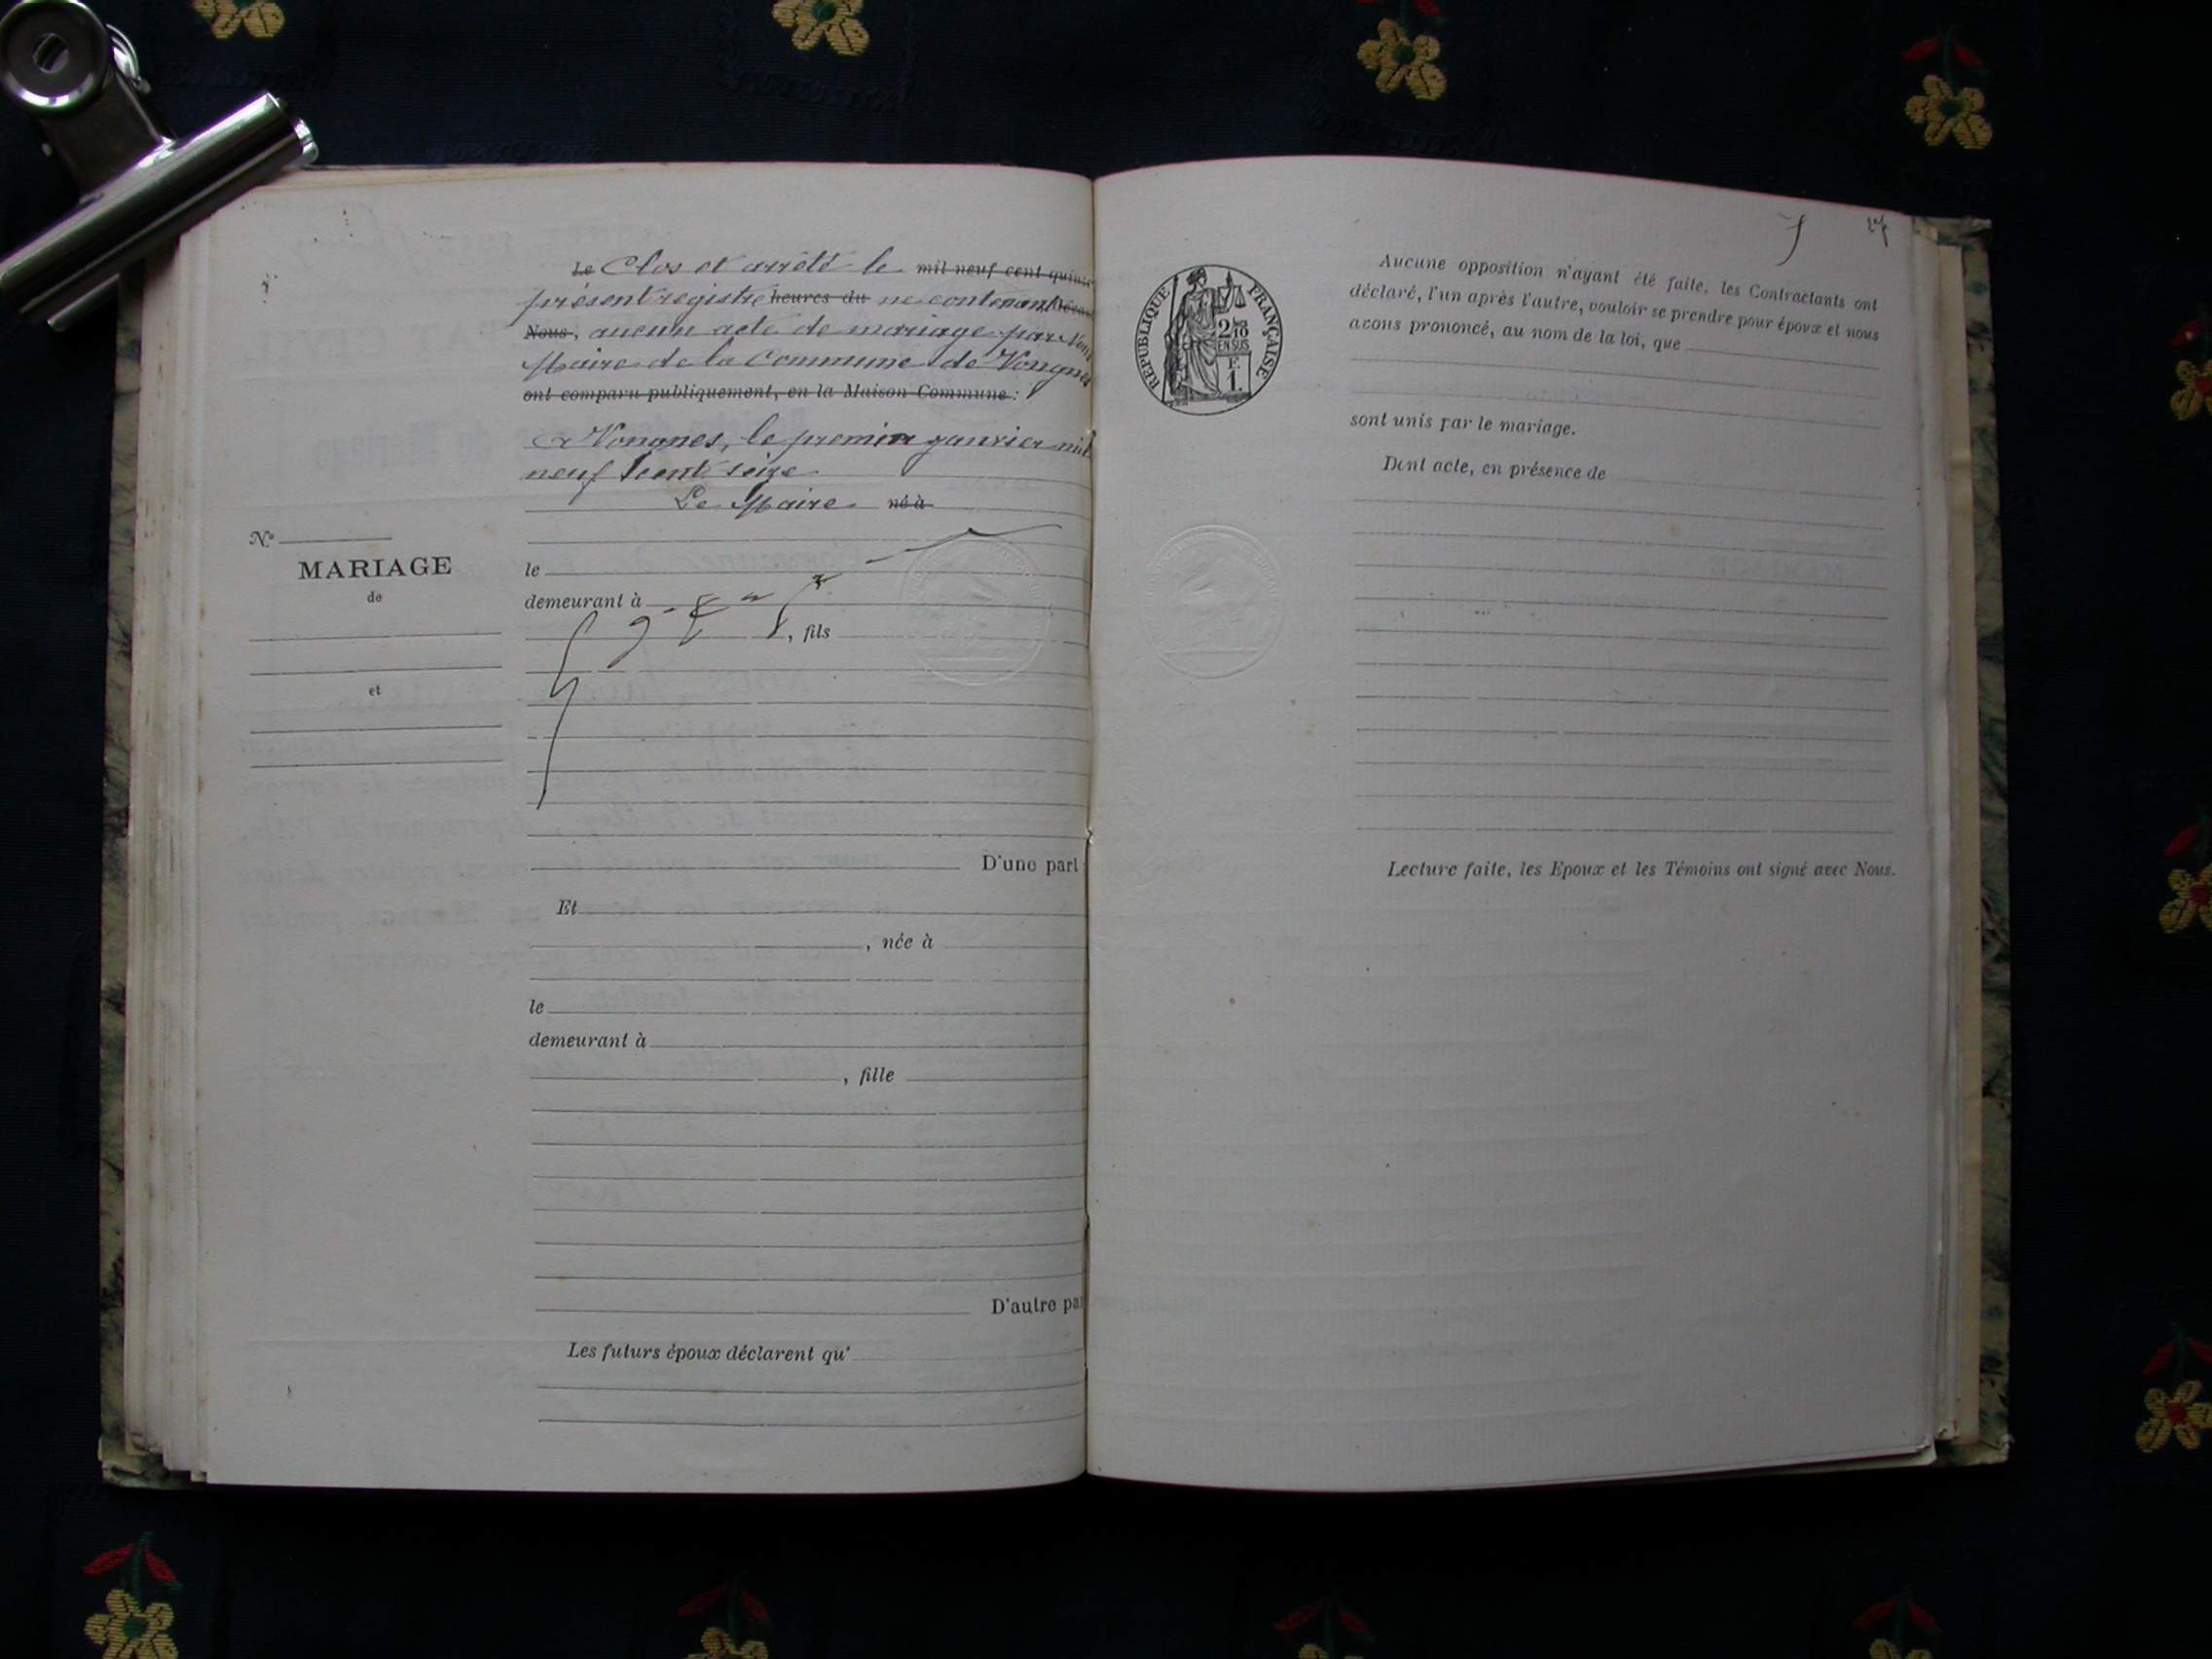 Le Clos et arrêté le mil neuf cent quinze
présent registre heures du ne contenant
Nous, aucun acte de mariage par Nous
Maire de la Commune de Vongnes
ont comparu publiquement, en la Maison Commune :
A Vongnes, le premier janvier mil
neuf cent seize
Le Maire né à
N°
MARIAGE
de
et
le
demeurant à
, fils
D'une part
Et
, née à
le
demeurant à
, fille
D'autre pa
Les futurs époux déclarent qu'
7
REPUBLIQUE FRANÇAISE
2/10
EN SUS
F
1.
Aucune opposition n'ayant été faite, les Contractants ont
déclaré, l'un après l'autre, vouloir se prendre pour époux et nous
avons prononcé, au nom de la loi, que
sont unis par le mariage.
Dont acte, en présence de
Lecture faite, les Epoux et les Témoins ont signé avec Nous.